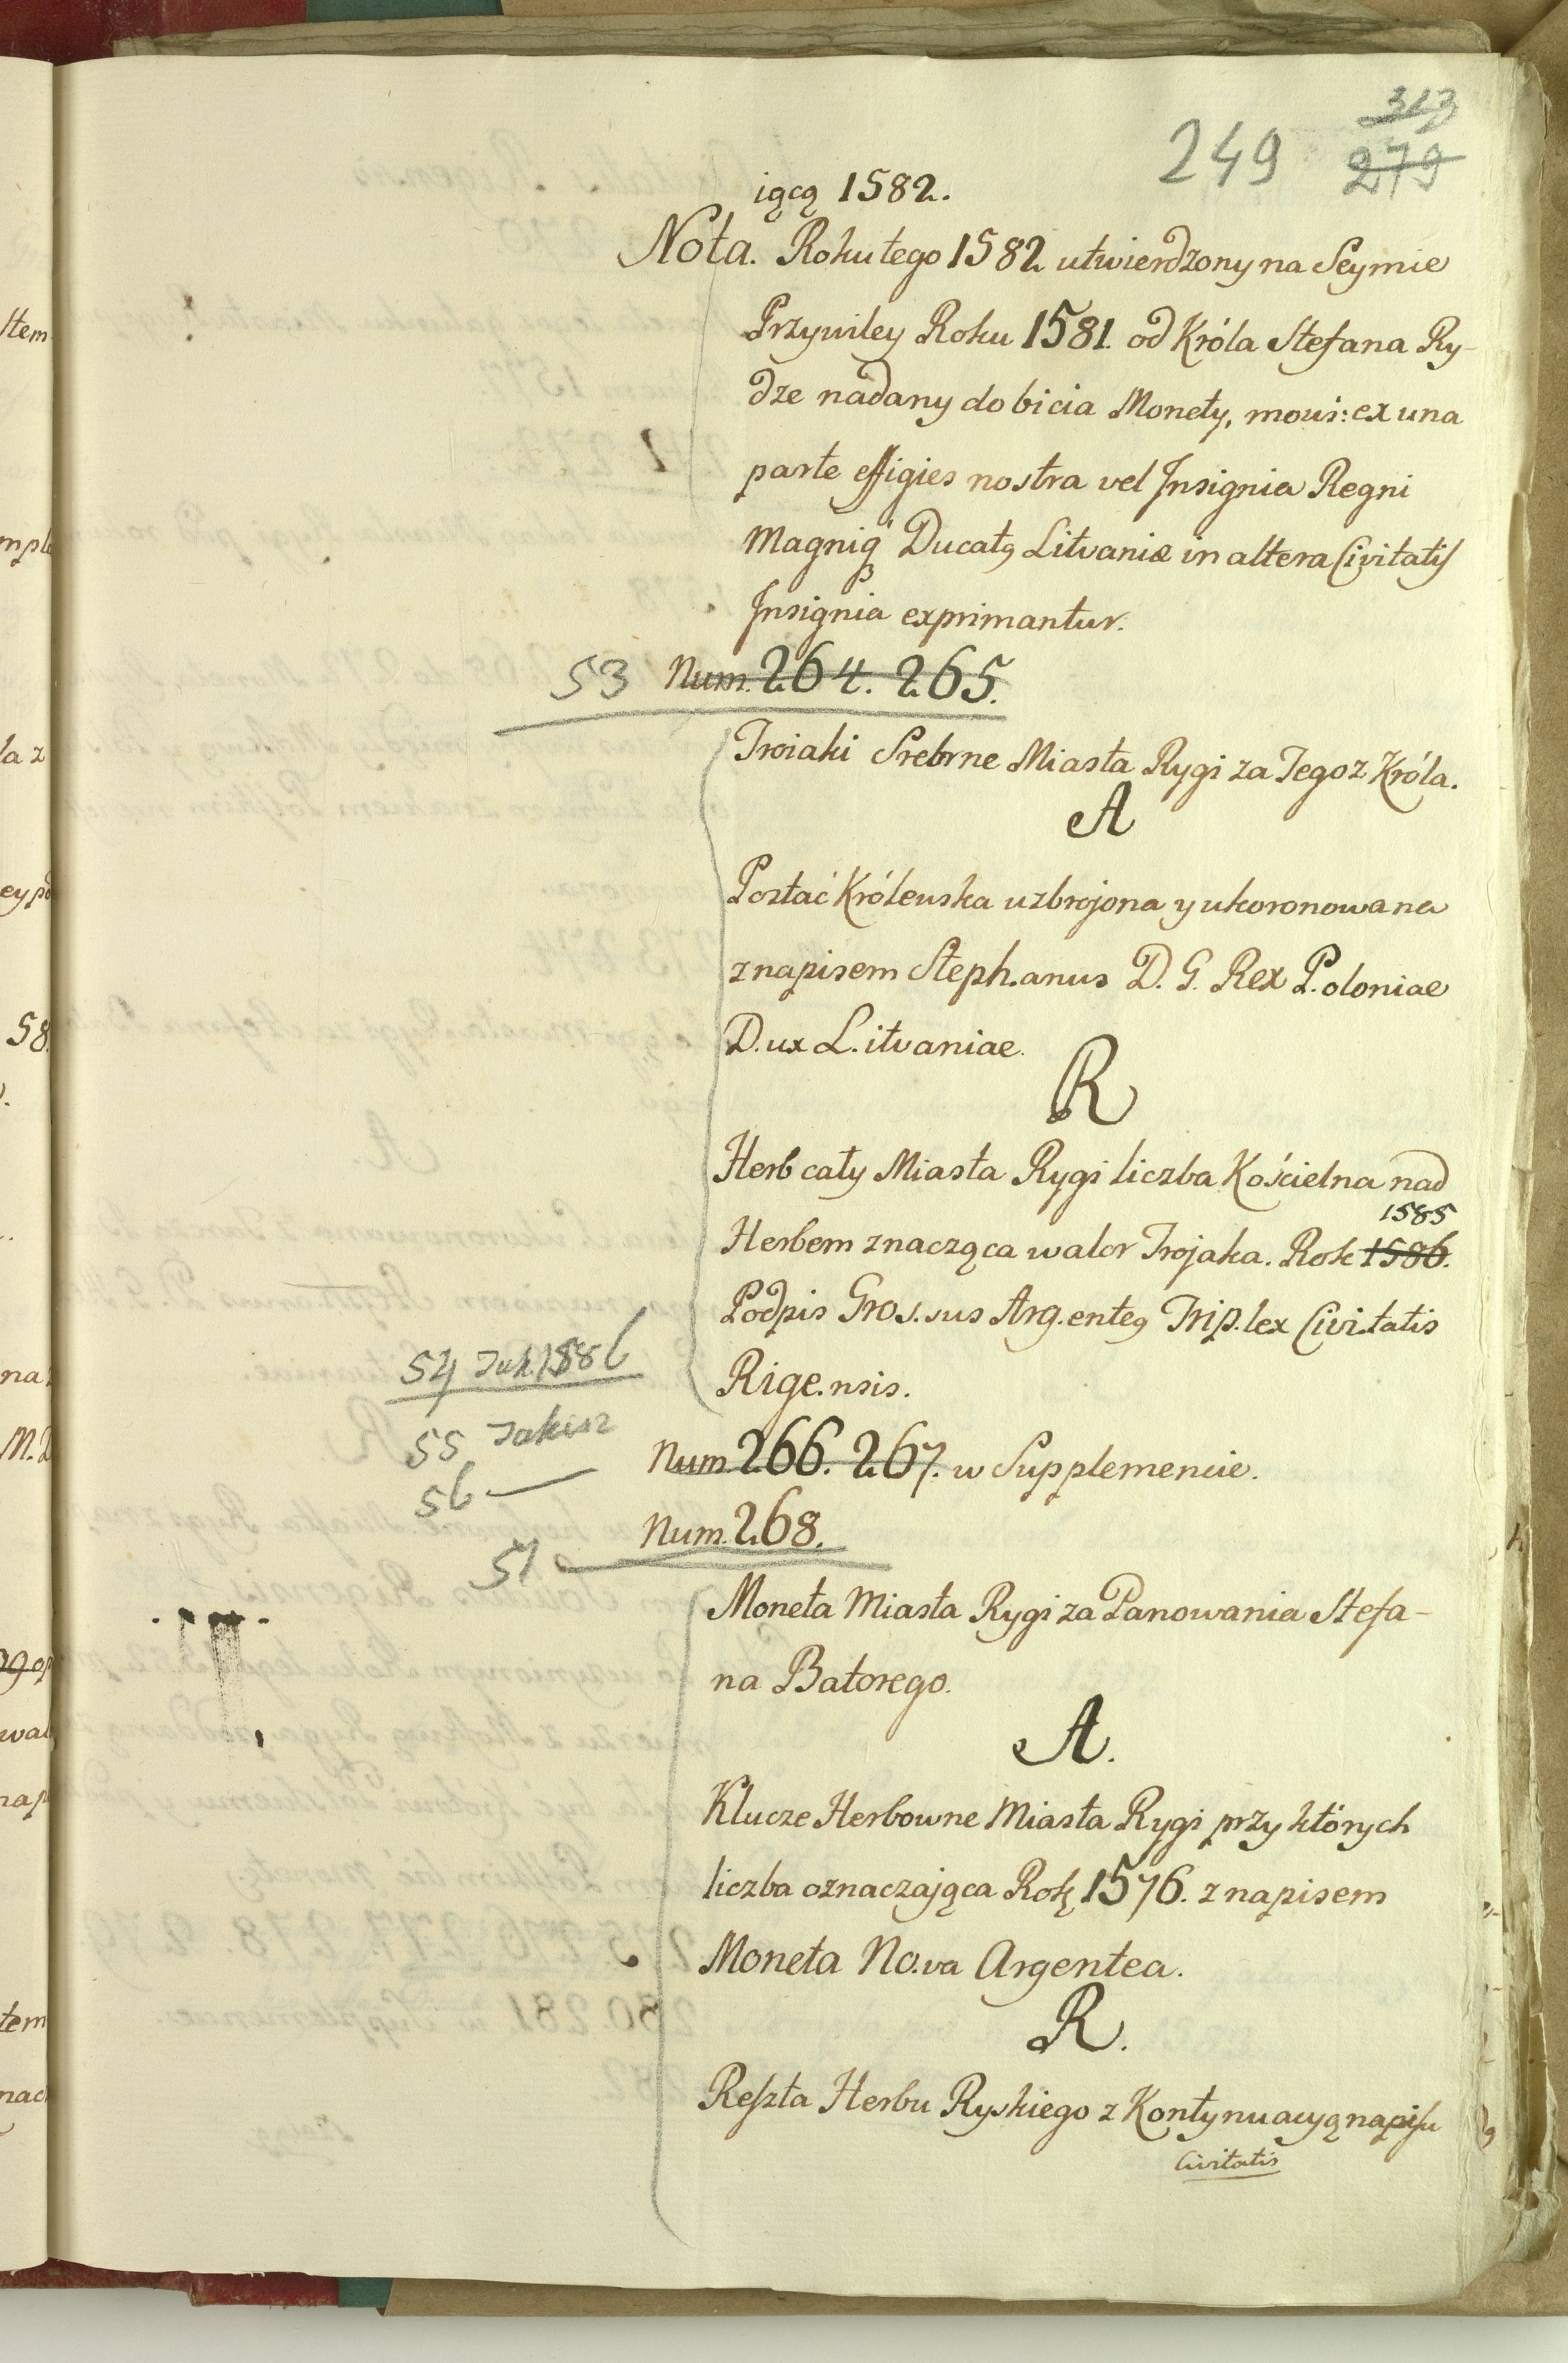 249
279
iącą 1582.
Nota. Roku tego 1582 utwierdzony na Seymie
Przywiley Roku 1581. od Króla Stefana Ry-
dze nadany do bicia Monety, mowi: ex una
parte effigies nostra vel Insignia Regni
Magniq3 Ducatq Litvaniæ in altera Civitatis
Insignia exprimantur.
53 Num. 264. 265.
Troiaki Srebrne Miasta Rygi za Tegoz Króla.
A
Postać Królewska uzbrojona y ukoronowana
z napisem Steph.anus D. G. Rex P.oloniae
D.ux L.itvaniae.
R
Herb cały Miasta Rygi liczba Kościelna nad
1585
Herbem znacząca walor Trojaka. Rok 1586.
Podpis Gros.sus Arg.enteq Trip.lex Civi.tatis
Rige.nsis.
54 Jak 1586
55 Jakisz
56 —
Num. 266. 267. w Supplemencie.
Num. 268.
51
Moneta Miasta Rygi za Panowania Stefa-
na Batorego.
A.
Klucze Herbowne Miasta Rygi przy których
liczba oznaczająca Rok 1576. z napisem
Moneta No.va Argentea.
R.
Reszta Herbu Ryskiego z Kontynuacyą napisu
Civitatis